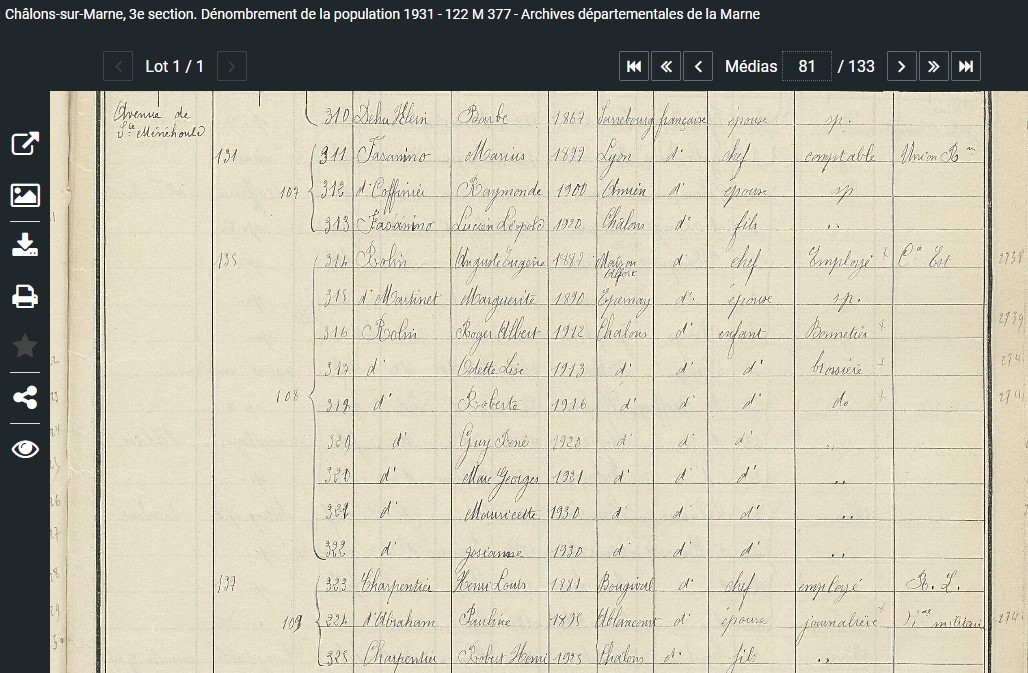 Châlons-sur-Marne, 3e section. Dénombrement de la population 1931 - 122 M 377 - Archives départementales de la Marne
Lot 1 / 1 Médias 81 / 133
Avenue de 310 Dehu Klein Barbe 1867 Sarrebourg française épouse sp.
Ste Ménéhould
131 311 Fasanino Marius 1899 Lyon d° chef comptable Union
107 312 d° Coffinié Raymonde 1900 Amien d° épouse sp
313 Fasanino Lucien Léopold 1920 Châlons d° fils "
135 314 Robin Auguste Eugène 1887 Maison d chef Employé + Cie Est 2738
315 d° Martinet Marguerite 1890 Epernay d° épouse sp.
316 Robin Roger Albert 1912 Chalons d° enfant Bonnetier + 2779
317 d° Odette Lise 1913 d° d° d° brossière +
108 318 d° Roberte 1916 d° d° d° do +
320 d° Guy René 1920 d° d° d° "
320 d° Marc Georges 1921 d° d° d° "
321 d° Mauricette 1930 d° d° d° "
322 d° Josianne 1930 d° d° d° "
137 323 Charpentier Henri Louis 1881 Bougival d° chef employé R. L.
109 324 d° Abraham Pauline 1895 Ablancourt d° épouse journalière +
325 Charpentier Robert Henri 1925 Chalons d° fils "